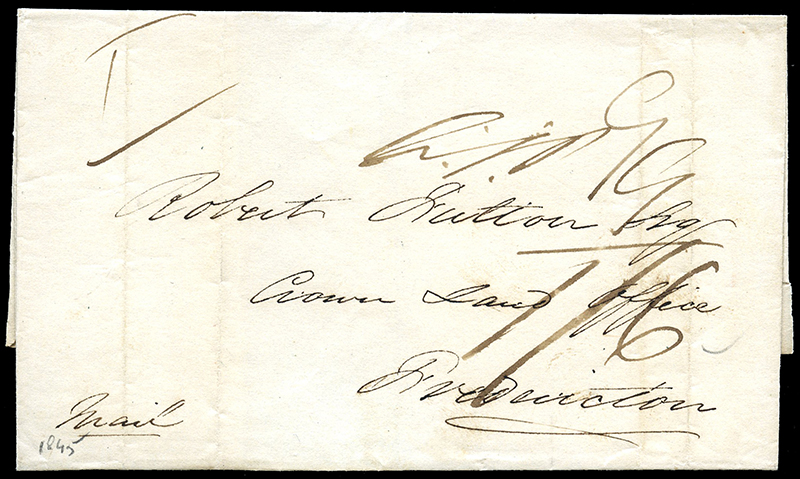 Robert Fulton Esq
1/6
Crown Land Office
Fredericton
Mail
1845